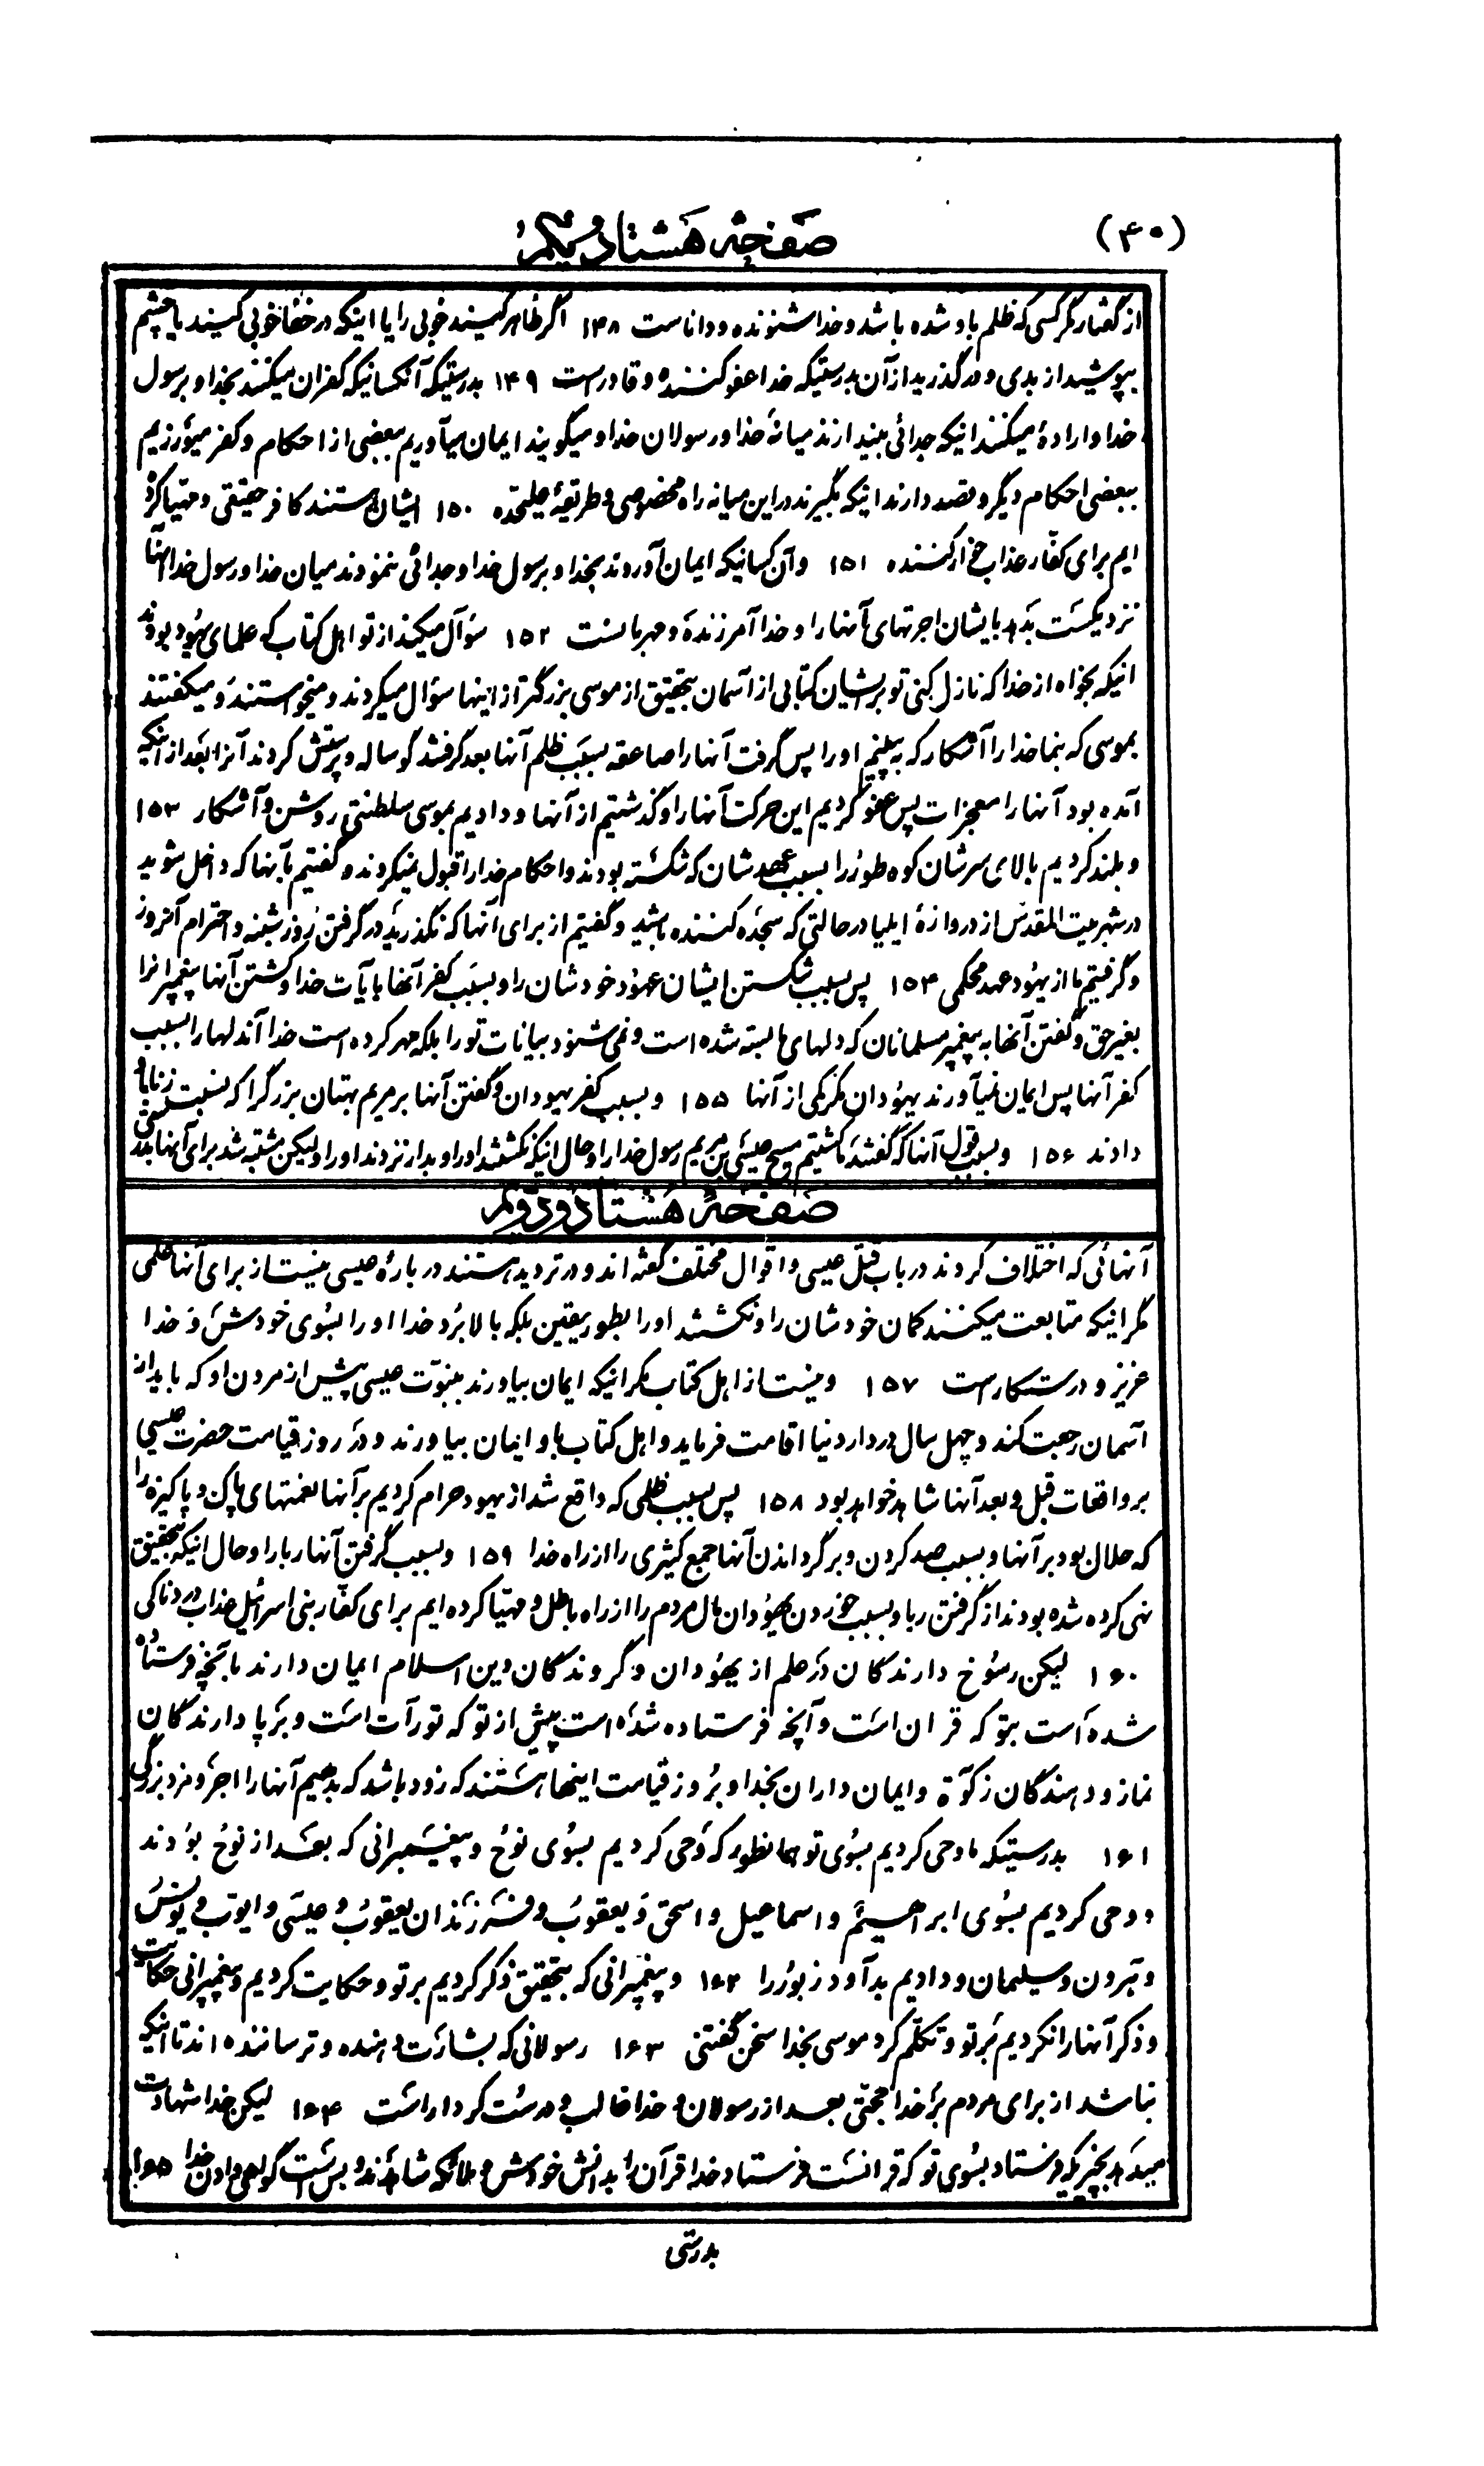 (۴۰)
صفحهٔ هشتاد و یکم
از گفتار مگر کسی که ظلم باو شده باشد و خدا شنونده و داناست ۱۴۸ اگر ظاهر کنید خوبی را یا اینکه در خفا خوبی کنید یا چشم
بپوشید از بدی و در گذرید از آن بدرستیکه خدا عفو کننده و قادر است ۱۴۹ بدرستیکه آنکسانیکه کفران میکنند بخدا و برسول
خدا و ارادهٔ میکنند اینکه جدائی بیندازند میانهٔ خدا و رسولان خدا و میگویند ایمان میآوریم ببعضی از احکام و کفر میورزیم
ببعضی احکام دیگر و قصد دارند اینکه بگیرند در این میانه راه مخصوصی و طریقهٔ علیحده ۱۵۰ ایشان هستند کافر حقیقی و مهیا کرده
ایم برای کفّار عذاب خوار کننده ۱۵۱ و آن کسانیکه ایمان آوردند بخدا و برسول خدا و جدائی ننمودند میان خدا و رسول خدا آنها
نزدیکست بدهد بایشان اجرتهای آنها را و خدا آمرزنده و مهربانست ۱۵۲ سؤال میکنند از تو اهل کتاب که علمای یهود بودند
اینکه بخواه از خدا که نازل کنی تو بر ایشان کتابی از آسمان بتحقیق از موسی بزرگتر از اینها سؤال میکردند و میخواستند و میگفتند
بموسی که بنما خدا را آشکار که به بینیم او را پس گرفت آنها را صاعقه بسبب ظلم آنها بعد گرفتند گوساله و پرستش کردند آنرا بعد از اینکه
آمده بود آنها را معجزات پس عفو کردیم این حرکت آنها را و گذشتیم از آنها و دادیم بموسی سلطنتی روشن و آشکار ۱۵۳
و بلند کردیم بالای سرشان کوه طور را بسبب عهدشان که شکسته بودند و احکام خدا را قبول نمیکردند و گفتیم بآنها که داخل شوید
در شهر بیت المقدس از دروازهٔ ایلیا در حالتی که سجده کننده باشید و گفتیم از برای آنها که نگذرید در گرفتن روز شنبه و احترام آنروز
و گرفتیم ما از یهود عهد محکمی ۱۵۴ پس بسبب شکستن ایشان عهود خودشان را و بسبب کفر آنها بآیات خدا و کشتن آنها پیغمبرانرا
بغیر حق و گفتن آنها به پیغمبر مسلمانان که دلهای ما بسته شده است و نمی شنود بیانات تو را بلکه مهر کرده است خدا آندلها را بسبب
کفر آنها پس ایمان نمیآورند یهودان مگر کمی از آنها ۱۵۵ و بسبب کفر یهودان و گفتن آنها بر مریم بهتان بزرگ را که نسبت زنا باو
دادند ۱۵۶ و بسبب قول آنها که گفتند ما کشتیم مسیح عیسی بن مریم رسول خدا را و حال اینکه نکشتند او را و بدار نزدند او را ولیکن مشتبه شد برای آنها
صفحهٔ هشتاد و دویم
آنهائی که اختلاف کردند در باب قتل عیسی و اقوال مختلف گفته اند و در تردید هستند در بارهٔ عیسی نیست از برای آنها علمی
مگر اینکه متابعت میکنند گمان خودشان را و نکشتند او را بطور یقین بلکه بالا برد خدا او را بسوی خودش و خدا
عزیز و درستکار است ۱۵۷ و نیست از اهل کتاب مگر اینکه ایمان بیاورند بنبوّت عیسی پیش از مردن او که باید از
آسمان رجعت کند و چهل سال در دار دنیا اقامت فرماید و اهل کتاب باو ایمان بیاورند و در روز قیامت حضرت عیسی
بر واقعات قبل و بعد آنها شاهد خواهد بود ۱۵۸ پس بسبب ظلمی که واقع شد از یهود حرام کردیم بر آنها نعمتهای پاک و پاکیزه را
که حلال بود بر آنها و بسبب صد کردن و بر گرداندن آنها جمع کثیری را از راه خدا ۱۵۹ و بسبب گرفتن آنها ربا را و حال اینکه بتحقیق
نهی کرده شده بودند از گرفتن ربا و بسبب خوردن یهودان مال مردم را از راه باطل و مهیّا کرده ایم برای کفّار بنی اسرائیل عذاب دردناکی
۱۶۰ لیکن رسوخ دارندگان در علم از یهودان و گروندگان دین اسلام ایمان دارند بآنچه فرستاده
شده است بتو که قران است و آنچه فرستاده شده است پیش از تو که تورآت است و بر پا دارندگان
نماز و دهندگان زکوٰة و ایمان داران بخدا و بروز قیامت اینها هستند که زود باشد که بدهیم آنها را اجر و مزد بزرگی
۱۶۱ بدرستیکه ما وحی کردیم بسوی تو همانطور که وحی کردیم بسوی نوح و پیغمبرانی که بعد از نوح بودند
و وحی کردیم بسوی ابراهیم و اسماعیل و اسحق و یعقوب و فرزندان یعقوب و عیسی و ایوب و یونس
و هرون و سلیمان و دادیم بدآود زبور را ۱۶۲ و پیغمبرانی که بتحقیق ذکر کردیم بر تو و حکایت کردیم و پیغمبرانی حکایت
و ذکر آنها را نکردیم بر تو و تکلّم کرد موسی بخدا سخن گفتنی ۱۶۳ رسولانی که بشارت دهنده و ترساننده اند تا اینکه
نباشد از برای مردم بر خدا حجّتی بعد از رسولان و خدا غالب و درست کردار است ۱۶۴ لیکن خدا شهادت
میدهد بچیزیکه فرستاد بسوی تو که قرانست فرستاد خدا قرآن را بدانش خودش و ملائکه شاهدند و بس است گواهی دادن خدا ۱۶۵
بدرستی